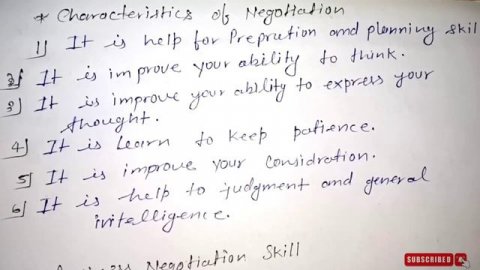 * Characteristics of Negotiation
1] It is help for Prepration and planning skil
2] It is improve your ability to think.
3] It is improve your ability to express your
thought.
4] It is Learn to keep patience.
5] It is improve your considration.
6] It is help to judgment and general
intelligence.
Negotiation Skill
SUBSCRIBED